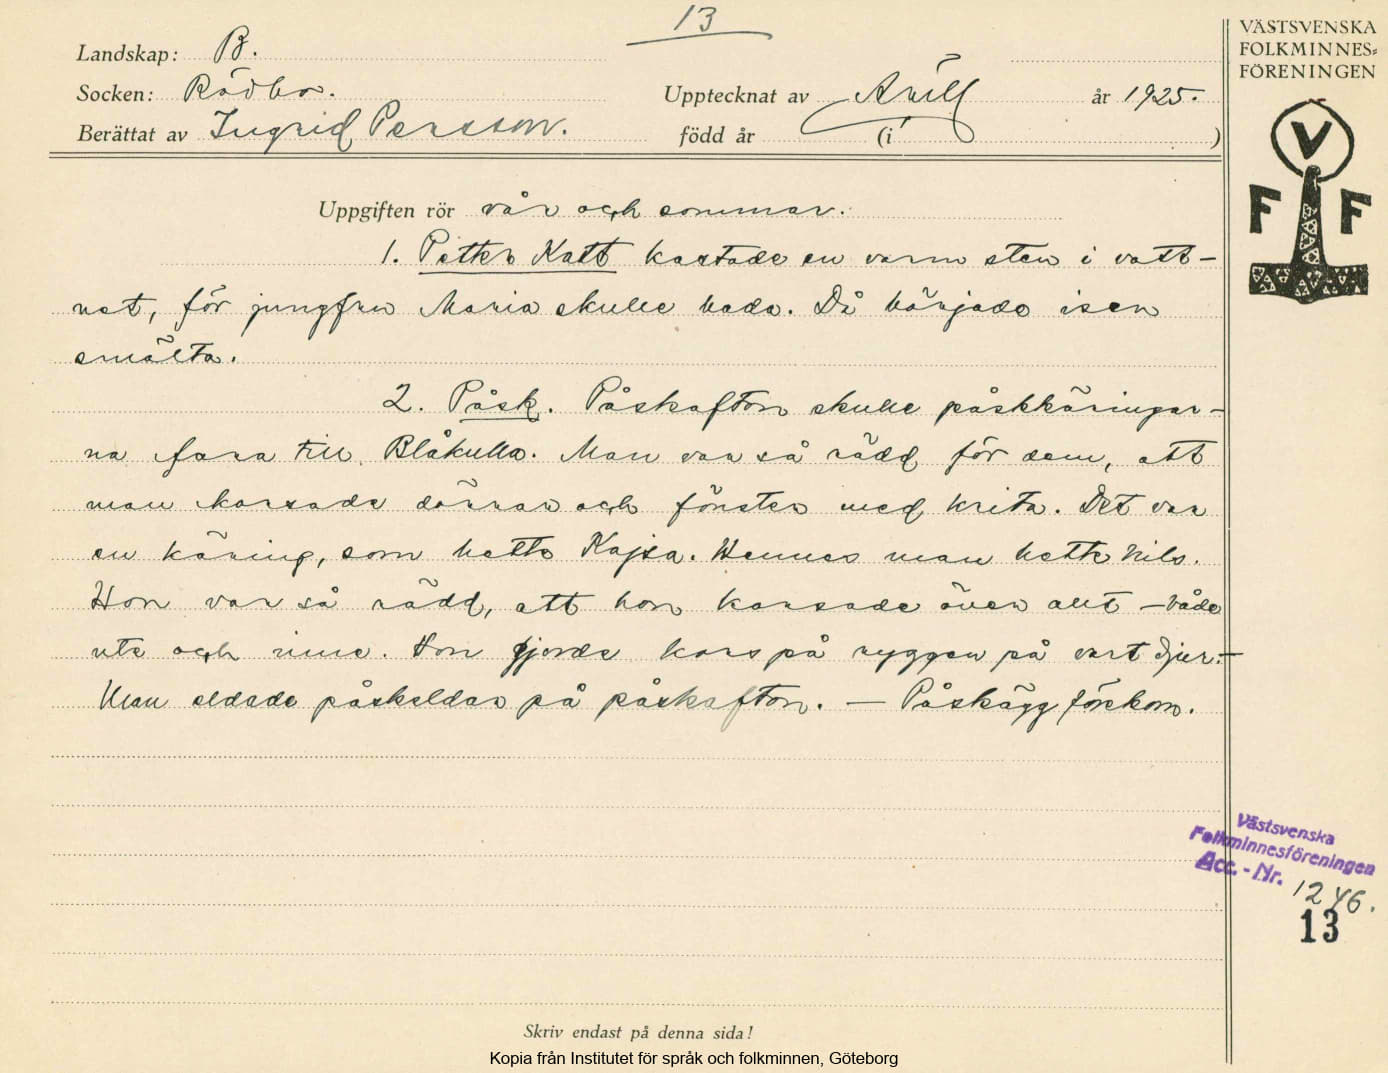 13
Landskap: B.
Socken: Rödbo.
Upptecknat av Arill år 1925.
Berättat av Ingrid Persson. född år (i )
VÄSTSVENSKA
FOLKMINNES=
FÖRENINGEN
V
F F
Uppgiften rör vår och sommar.
1. Petter Katt kastade en varm sten i vatt-
net, för jungfru Maria skulle bada. Då började isen
smälta.
2. Påsk. Påskafton skulle påskkäringar-
na fara till Blåkulla. Man var så rädd för dem, att
man korsade dörrar och fönster med krita. Det var
en käring, som hette Kajsa. Hennes man hette Nils.
Hon var så rädd, att hon korsade över allt – både
ute och inne. Hon gjorde kors på ryggen på vart djur. –
Man eldade påskeldar på påskafton. — Påskägg förekom.
Västsvenska
Folkminnesföreningen
Acc. - Nr. 1246.
13
Skriv endast på denna sida!
Kopia från Institutet för språk och folkminnen, Göteborg